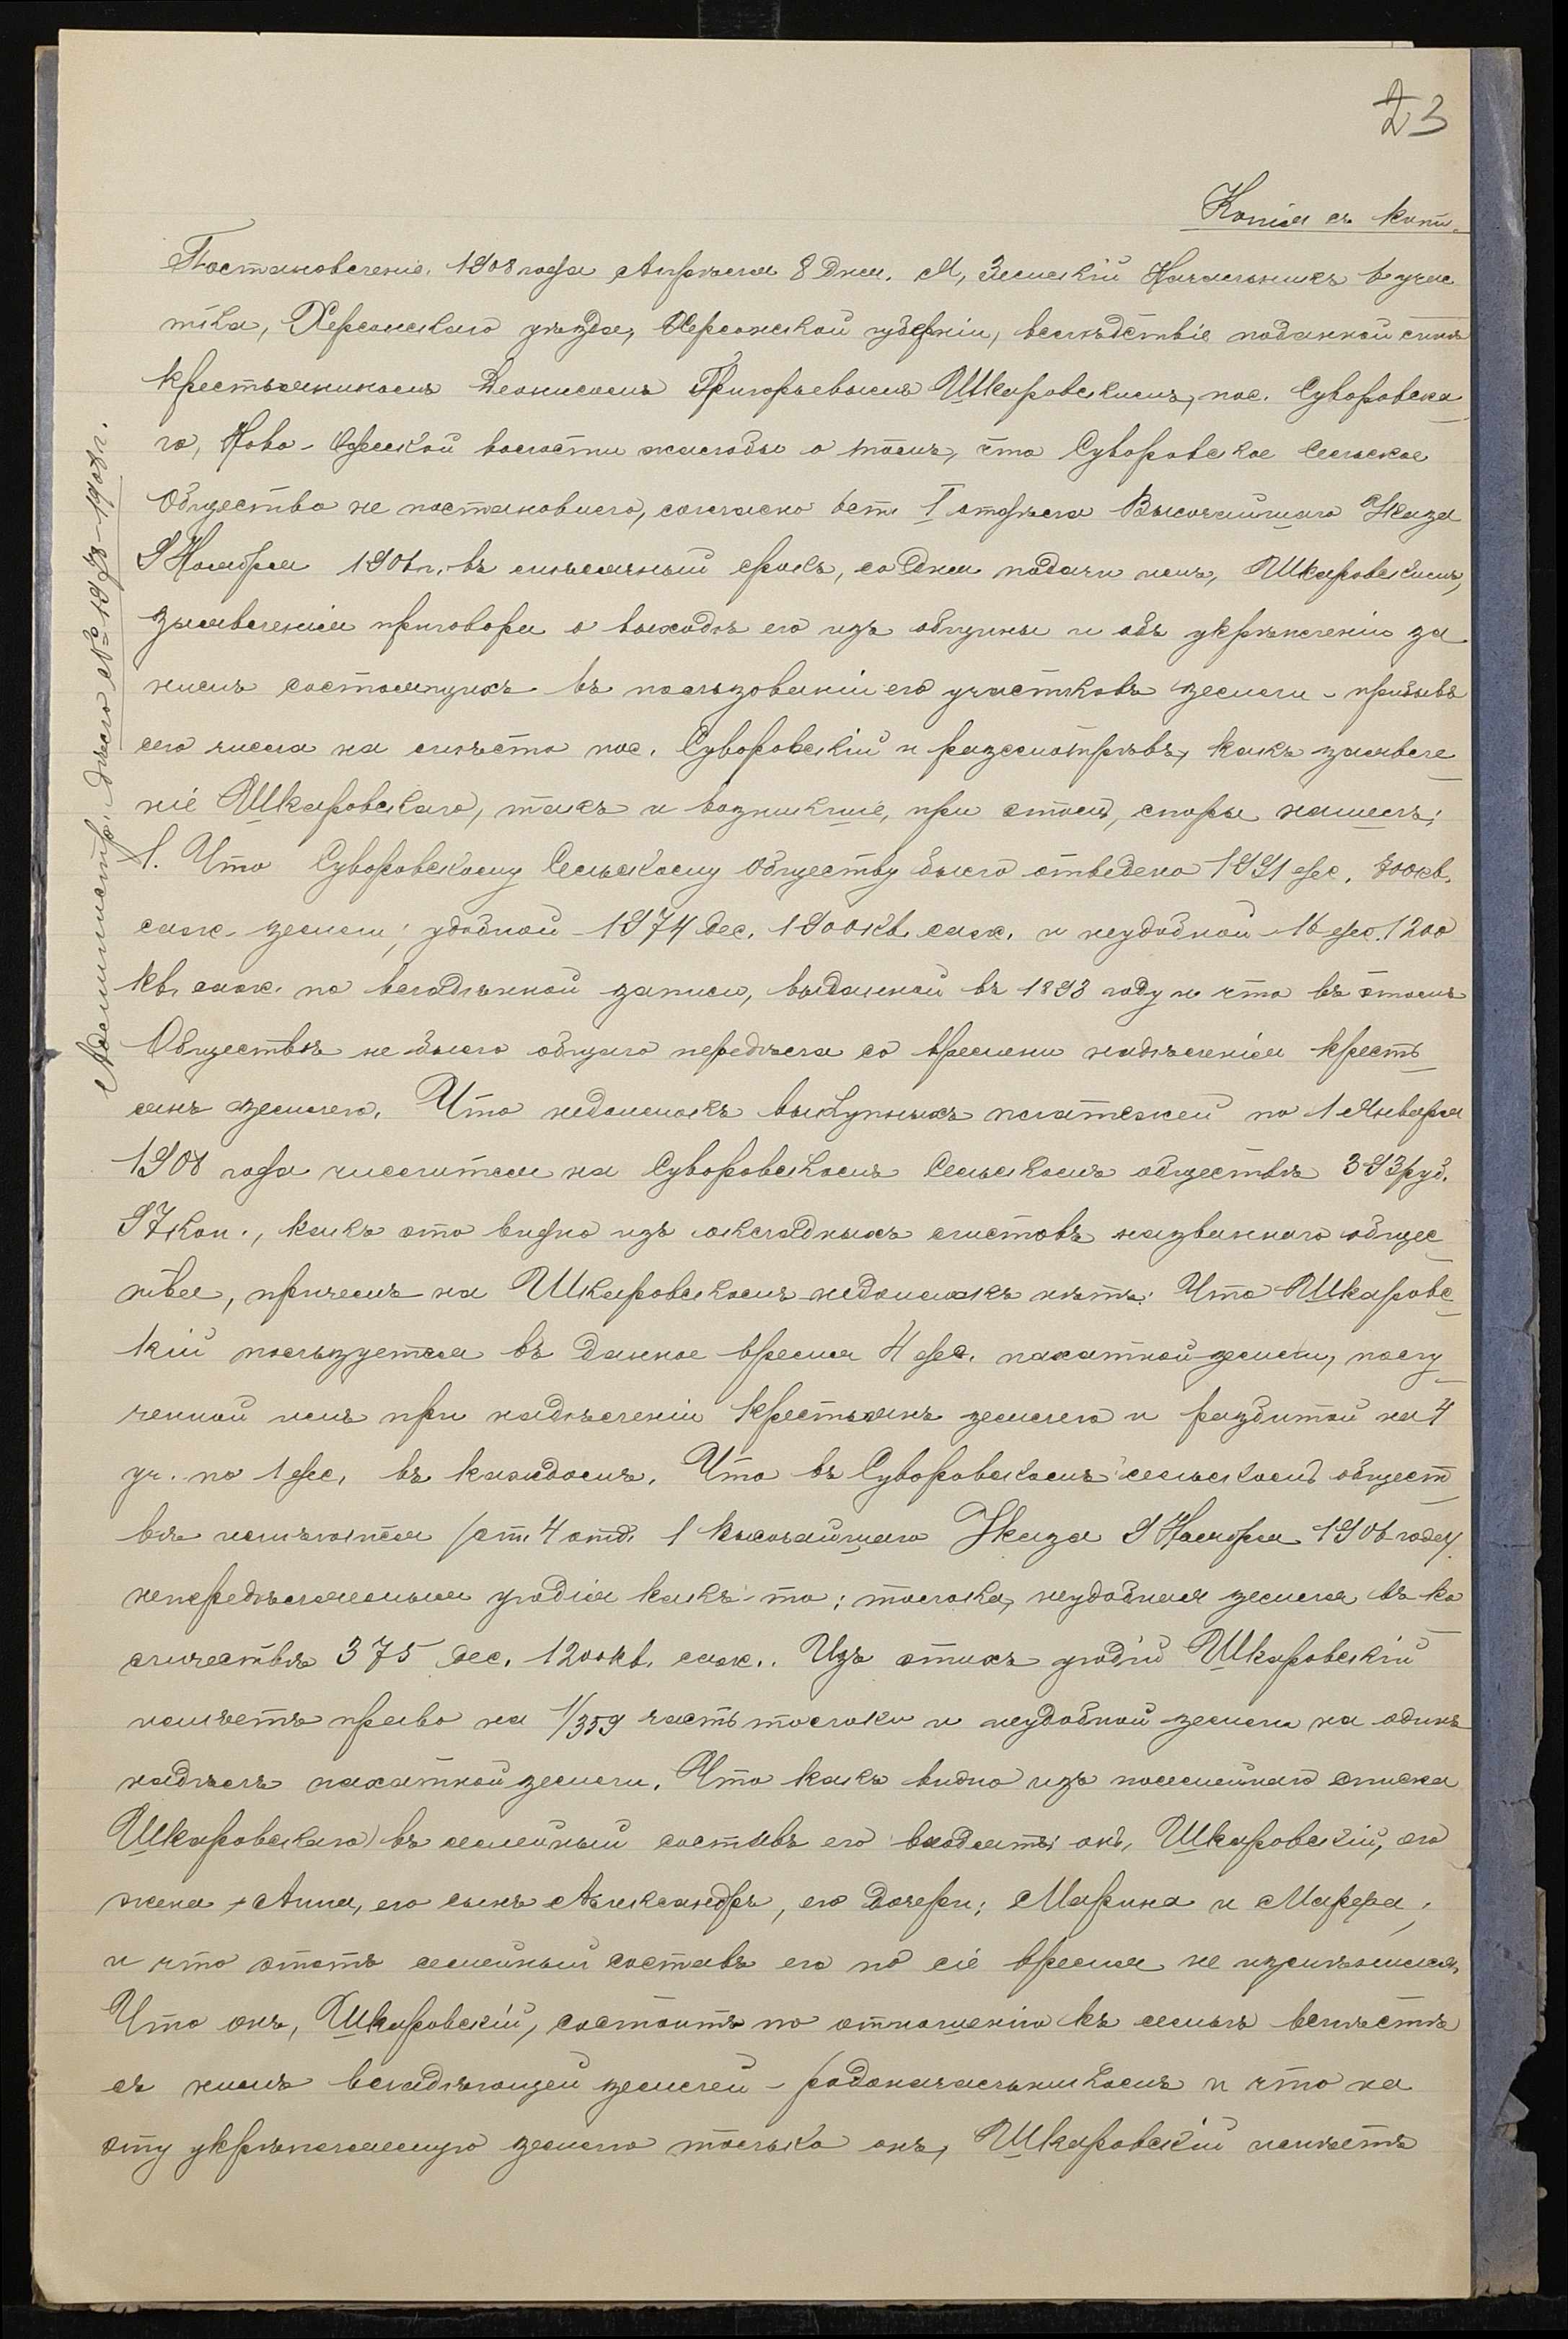 23
Копія съ копіи.
Постановленіе. 1908 года Апрѣля 8 дня. Я, Земскій Начальникъ 6 учас
тка, Херсонскаго уѣзда, Херсонской губерніи, вслѣдствіе поданной мнѣ
крестьяниномъ Деонисомъ Григорьевымъ Шкаровскимъ, пос. Суворовска
го, Ново-Одесской волости жалобы о томъ, что Суворовское Сельское
Общество не постановило, согласно 6 ст. I отдѣла Высочайшаго Указа
9 Ноября 1906 г. въ мѣсячный срокъ, со дня подачи имъ, Шкаровскимъ,
заявленія приговора о выходѣ его изъ общины и объ укрѣпленіи за
нимъ состоящихъ въ пользованіи его участковъ земли - прибывъ
сего числа на мѣсто пос. Суворовскій и разсмотрѣвъ, какъ заявле
ніе Шкаровскаго, такъ и возникшіе, при этомъ, споры нашелъ:
1. Что Суворовскому Сельскому Обществу было отведено 1991 дес. 700 кв.
саж. земли; удобной - 1974 дес. 1900 кв. саж. и неудобной - 16 дес. 1200
кв. саж. по владѣнной записи, выданной въ 1893 году и что въ этомъ
Обществѣ не было общаго передѣла со времени надѣленія кресть
янъ землею. Что недоимокъ выкупныхъ платежей по 1 Января
1908 года числится на Суворовскомъ Сельскомъ обществѣ 393 руб.
97 коп., какъ это видно изъ окладныхъ листовъ названнаго общес
тва, причемъ на Шкаровскомъ недоимокъ нѣтъ. Что Шкаровс
кій пользуется въ данное время 4 дес. пахатной земли, полу
ченной имъ при надѣленіи крестьянъ землею и разбитой на 4
уч. по 1 дес. въ каждомъ. Что въ Суворовскомъ сельскомъ общест
вѣ имѣются /ст. 4 отд. 1 Высочайшаго Указа 9 Ноября 1906 года/
непередѣляемыя угодія какъ-то: толока, неудобная земля въ ко
личествѣ 375 дес. 1200 кв. саж.. Изъ этихъ угодій Шкаровскій
имѣетъ право на 1/359 часть толоки и неудобной земли на одинъ
надѣлъ пахатной земли. Что какъ видно изъ посемейнаго списка
Шкаровскаго) въ семейный составъ его входятъ: онъ, Шкаровскій, его
жена - Анна, его сынъ Александръ, его дочери: Марина и Марфа,
и что этотъ семейный составъ его по сіе время не измѣнился.
Что онъ, Шкаровскій, состоитъ по отношенію къ семьѣ вмѣстѣ
съ нимъ владѣющей землей - родоначальникомъ и что на
эту укрѣпляемую землю только онъ, Шкаровскій имѣетъ
Администр. дѣло № 1908 г.